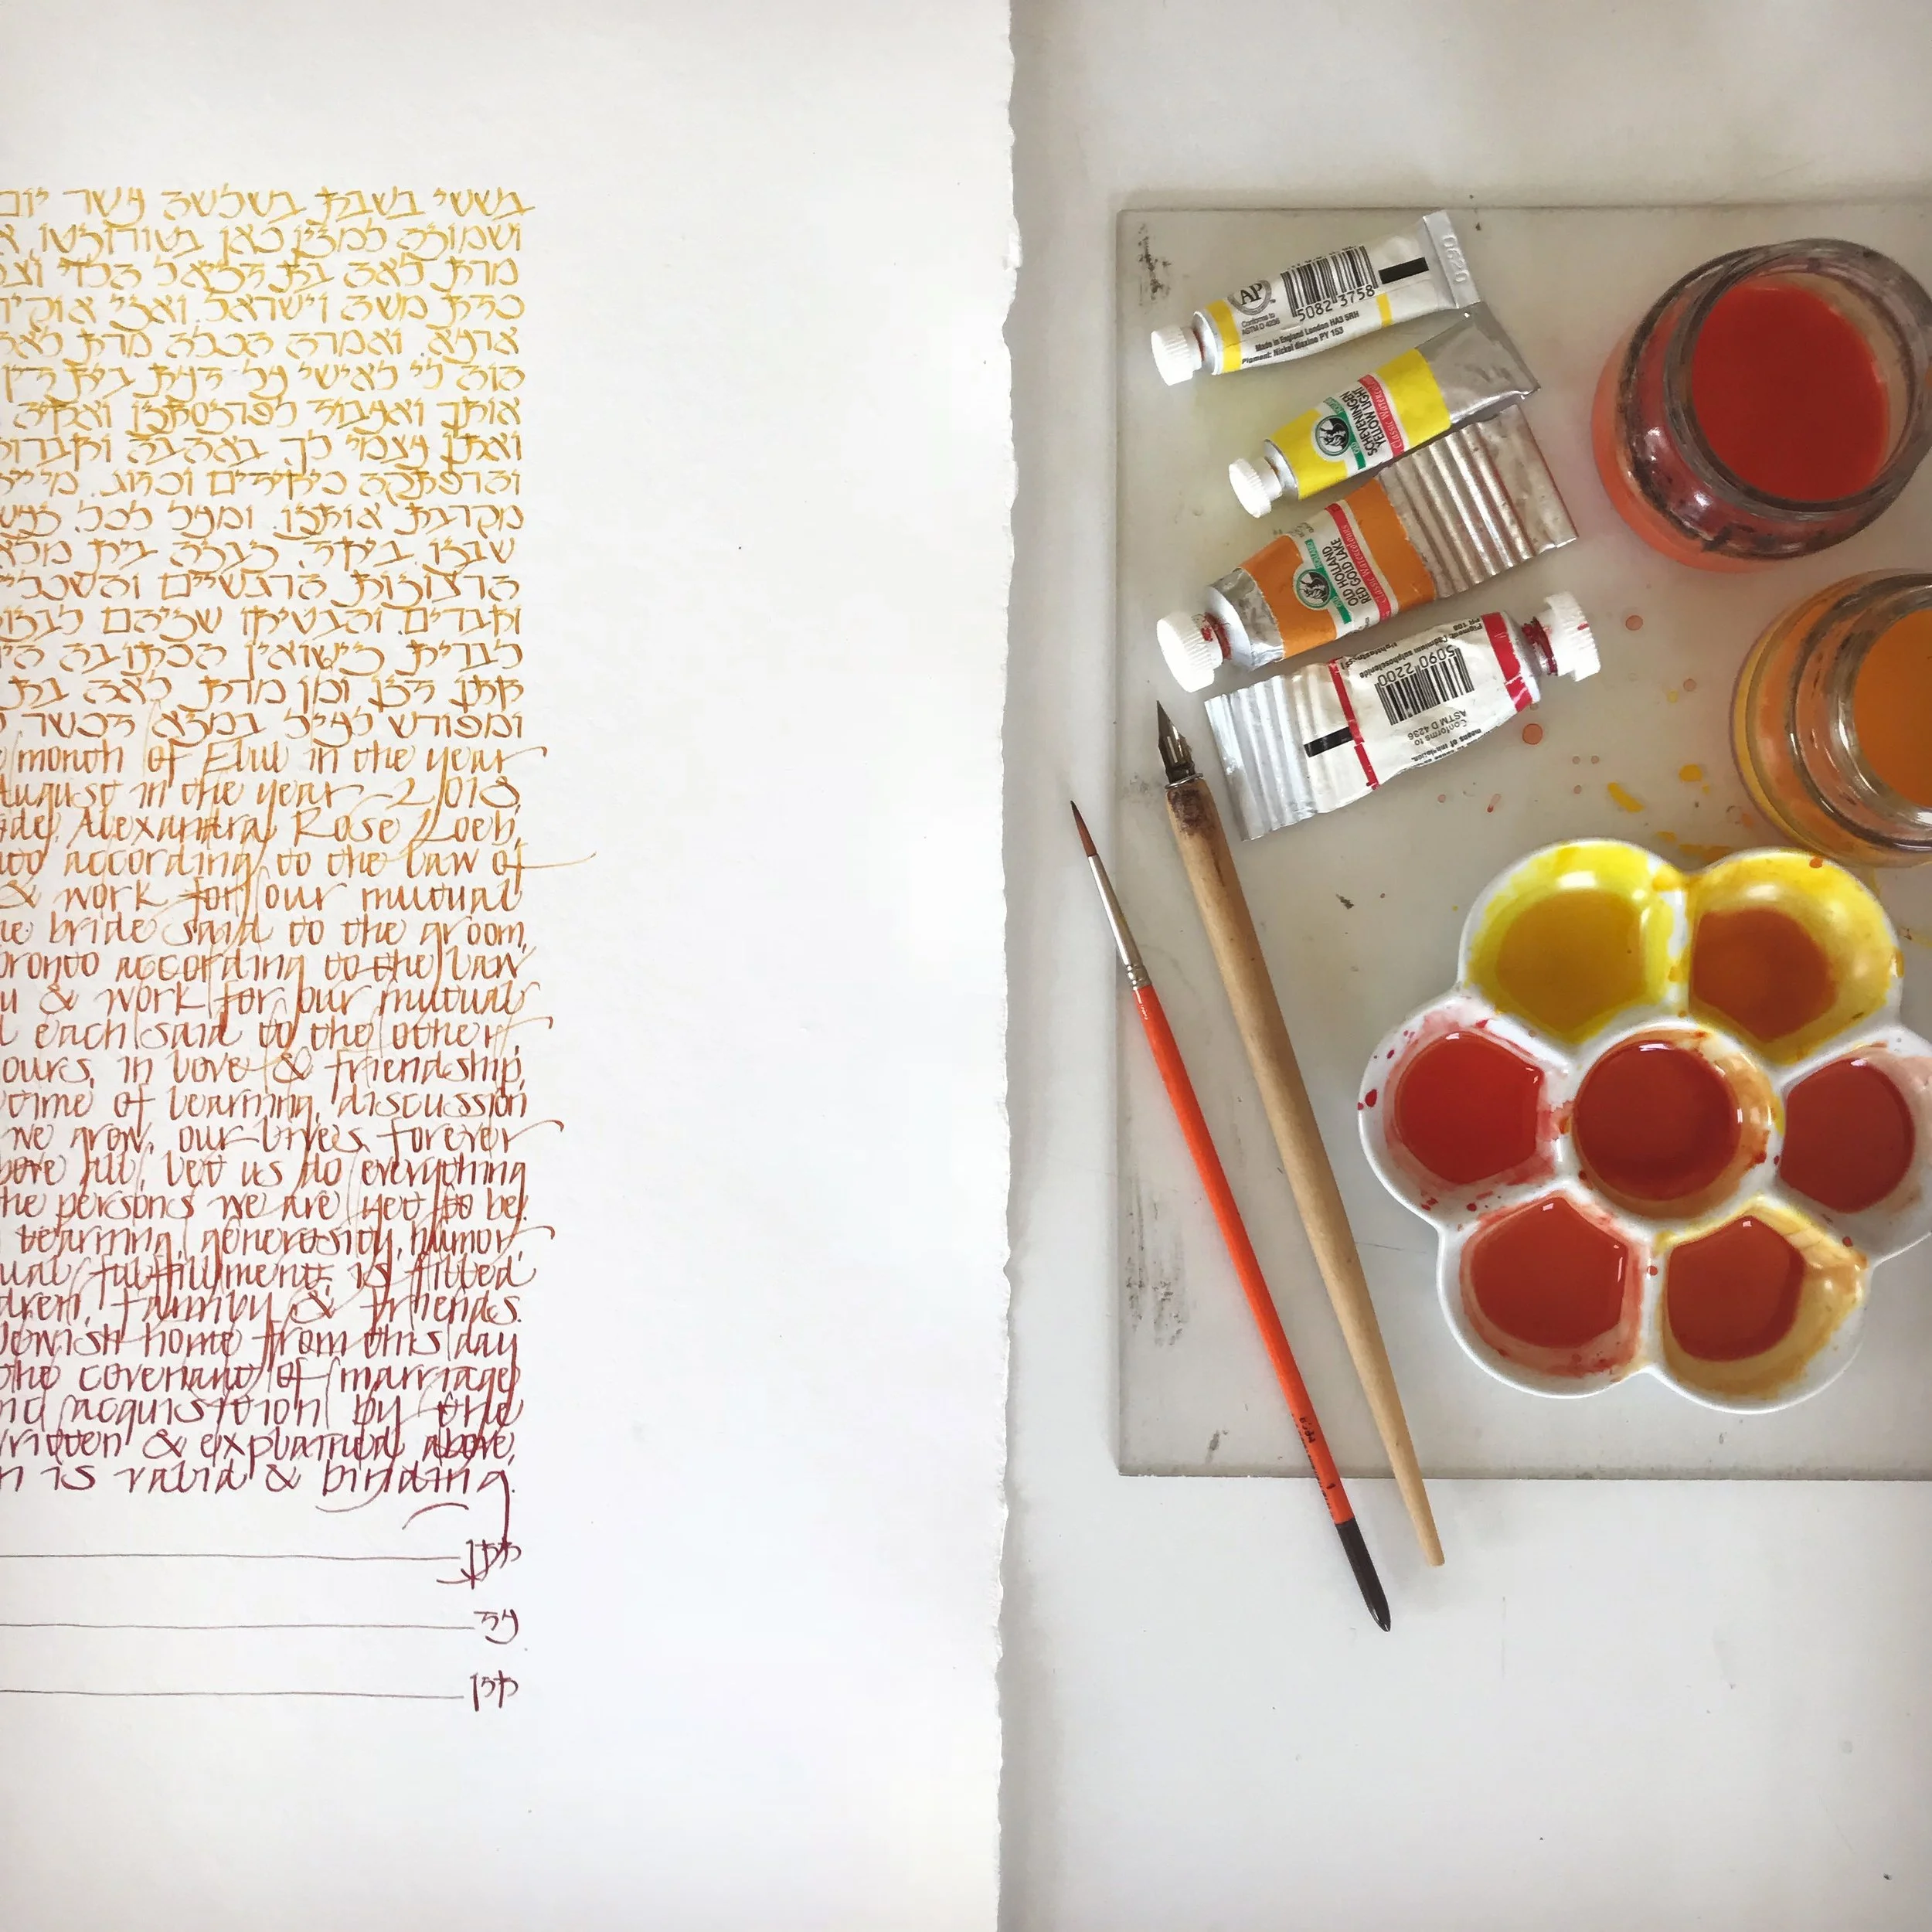 בששי בשבת בשלשה עשר יום
ושמונה למנין כאן בטורונטו
מרת לאה בת דניאל הלוי
כדת משה וישראל ואני אוקיר
ארעא. ואמרה הכלה מרת לאה
הוה לי לאישי על דעת בית דין
אותך ואעבוד לפרנסתנו ואהיה
ואתן עצמי לך באהבה וחברות
והרפתקה כיחידים וכזוג.
מקרבת אותנו. ומעל לכל
שבנו. ביחד, נבנה בית מלא
הרצונות הרגשיים והשכליים
וחברים. והבטיחו שניהם לבנות
לברית נישואין הכתובה
חתן דנן ומן מרת לאה בת
ומפורש לעיל במנא דכשר
month of Elul in the year
August in the year 2018,
Alexandra Rose Loeb,
according to the law of
& work for our mutual
bride said to the groom,
according to the law
& work for our mutual
each said to the other,
in love & friendship,
of learning, discussion
we grow, our lives forever
all, let us do everything
the persons we are yet to be.
learning, generosity, humor,
fulfillment, is filled
family & friends.
Jewish home from this day
the covenant of marriage
acquisition by the
written & explained above,
is valid & binding.
חתן
עד
AP
Conforms to
ASTM D 4236
5082 3758
Made in England London HA3 5RH
Pigment: Nickel dioxine PY 153
SCHEVENINGEN
YELLOW LIGHT
Classic Watercolours
OLD HOLLAND
RED GOLD LAKE
Classic Watercolours
5090 2200
Conforms to
ASTM D 4236